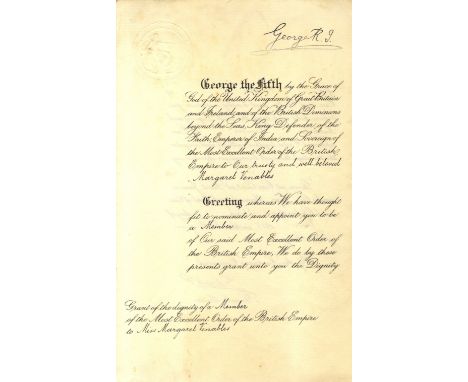 George R. I.
George the Fifth by the Grace of
God of the United Kingdom of Great Britain
and Ireland, and of the British Dominions
beyond the Seas, King, Defender of the
Faith, Emperor of India and Sovereign of
the Most Excellent Order of the British
Empire to Our trusty and well beloved
Margaret Venables
Greeting whereas We have thought
fit to nominate and appoint you to be
a Member
of Our said Most Excellent Order of
the British Empire, We do by these
presents grant unto you the Dignity
Grant of the dignity of a Member
of the Most Excellent Order of the British Empire
to Miss Margaret Venables